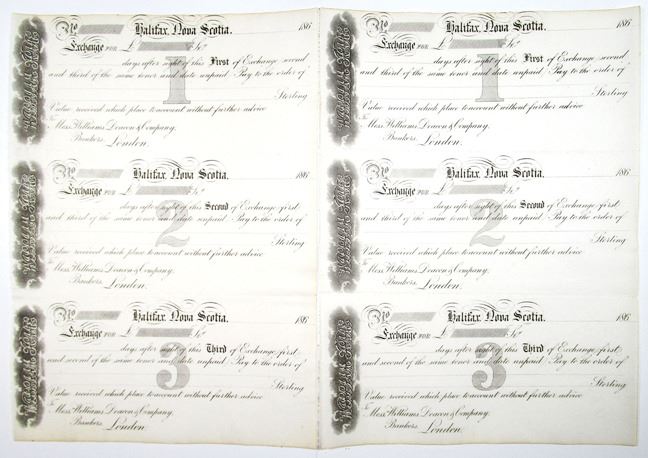 No Halifax, Nova Scotia. 186
Exchange FOR £ Stg.
days after sight of this First of Exchange second
and third of the same tenor and date unpaid Pay to the order of
1
Sterling
Value received which place to account without further advice
To Messrs. Williams Deacon & Company,
Bankers,
London.
No Halifax, Nova Scotia. 186
Exchange FOR £ Stg.
days after sight of this Second of Exchange first
and third of the same tenor and date unpaid Pay to the order of
2
Sterling
Value received which place to account without further advice
To Messrs. Williams Deacon & Company,
Bankers,
London.
No Halifax, Nova Scotia. 186
Exchange FOR £ Stg.
days after sight of this Third of Exchange first
and second of the same tenor and date unpaid Pay to the order of
3
Sterling
Value received which place to account without further advice
To Messrs. Williams Deacon & Company,
Bankers,
London.
No Halifax, Nova Scotia. 186
Exchange FOR £ Stg.
days after sight of this First of Exchange second
and third of the same tenor and date unpaid Pay to the order of
1
Sterling
Value received which place to account without further advice
To Messrs. Williams Deacon & Company,
Bankers,
London.
No Halifax, Nova Scotia. 186
Exchange FOR £ Stg.
days after sight of this Second of Exchange first
and third of the same tenor and date unpaid Pay to the order of
2
Sterling
Value received which place to account without further advice
To Messrs. Williams Deacon & Company,
Bankers,
London.
No Halifax, Nova Scotia. 186
Exchange FOR £ Stg.
days after sight of this Third of Exchange first
and second of the same tenor and date unpaid Pay to the order of
3
Sterling
Value received which place to account without further advice
To Messrs. Williams Deacon & Company,
Bankers,
London.